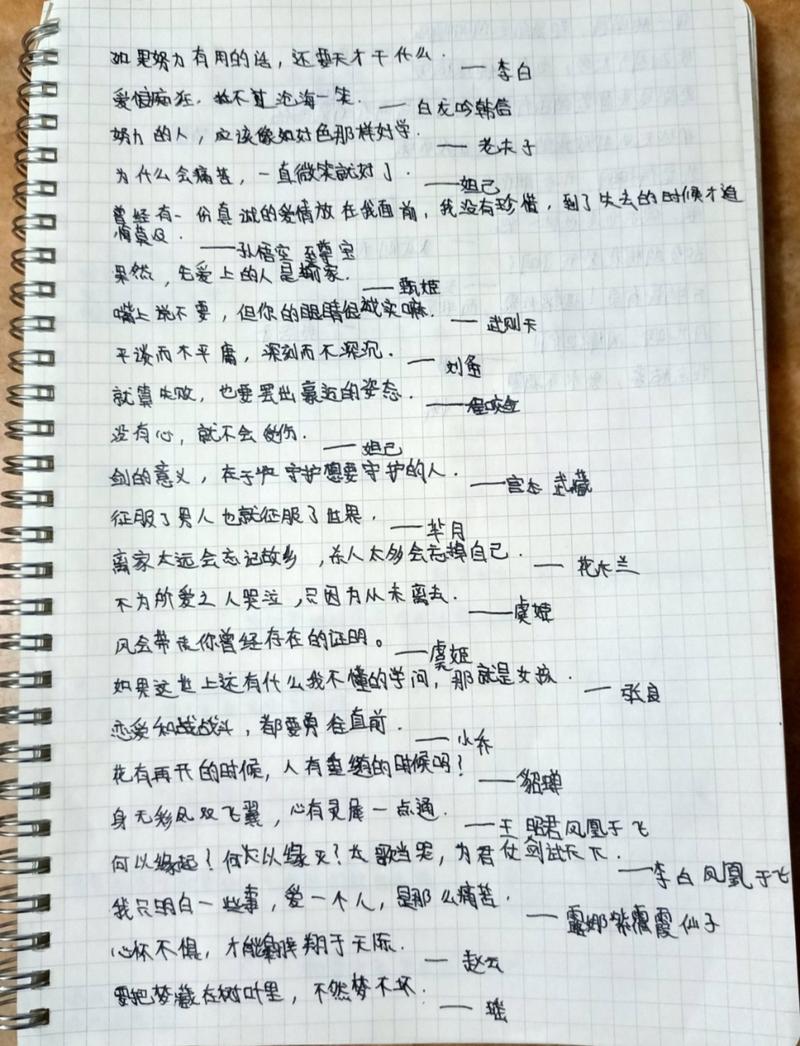 如果努力有用的话，还要天才干什么．——李白
爱恨痴狂，敌不过沧海一笑．——白龙吟韩信
努力的人，应该像好好色那样好学．——老夫子
为什么会痛苦，一直微笑就好了．——妲己
曾经有一份真诚的爱情放在我面前，我没有珍惜，到了失去的时候才追
悔莫及．——孙悟空 至尊宝
果然，先爱上的人是输家．——甄姬
嘴上说不要，但你的眼睛很诚实嘛．——武则天
平淡而不平庸，深刻而不深沉．——刘备
就算失败，也要摆出豪迈的姿态．——程咬金
没有心，就不会受伤．——妲己
剑的意义，在于 守护想要守护的人．——宫本 武藏
征服了男人也就征服了世界．——芈月
离家太远会忘记故乡，杀人太多会忘掉自己．——花木兰
不为所爱之人哭泣，只因为从未离去．——虞姬
风会带走你曾经存在的证明。——虞姬
如果这世上还有什么我不懂的学问，那就是女孩．——张良
恋爱和战战斗，都要勇往直前．——小乔
花有再开的时候，人有重逢的时候吗？——貂蝉
身无彩凤双飞翼，心有灵犀一点通．——王昭君凤凰于飞
何以缘起？何以缘灭？长歌当哭，为君仗剑试天下．——李白 凤凰于飞
我只明白一些事，爱一个人，是那么痛苦．——露娜紫霞仙子
心怀不惧，才能翱翔于天际．——赵云
要把梦藏在树叶里，不然梦不坏．——瑶